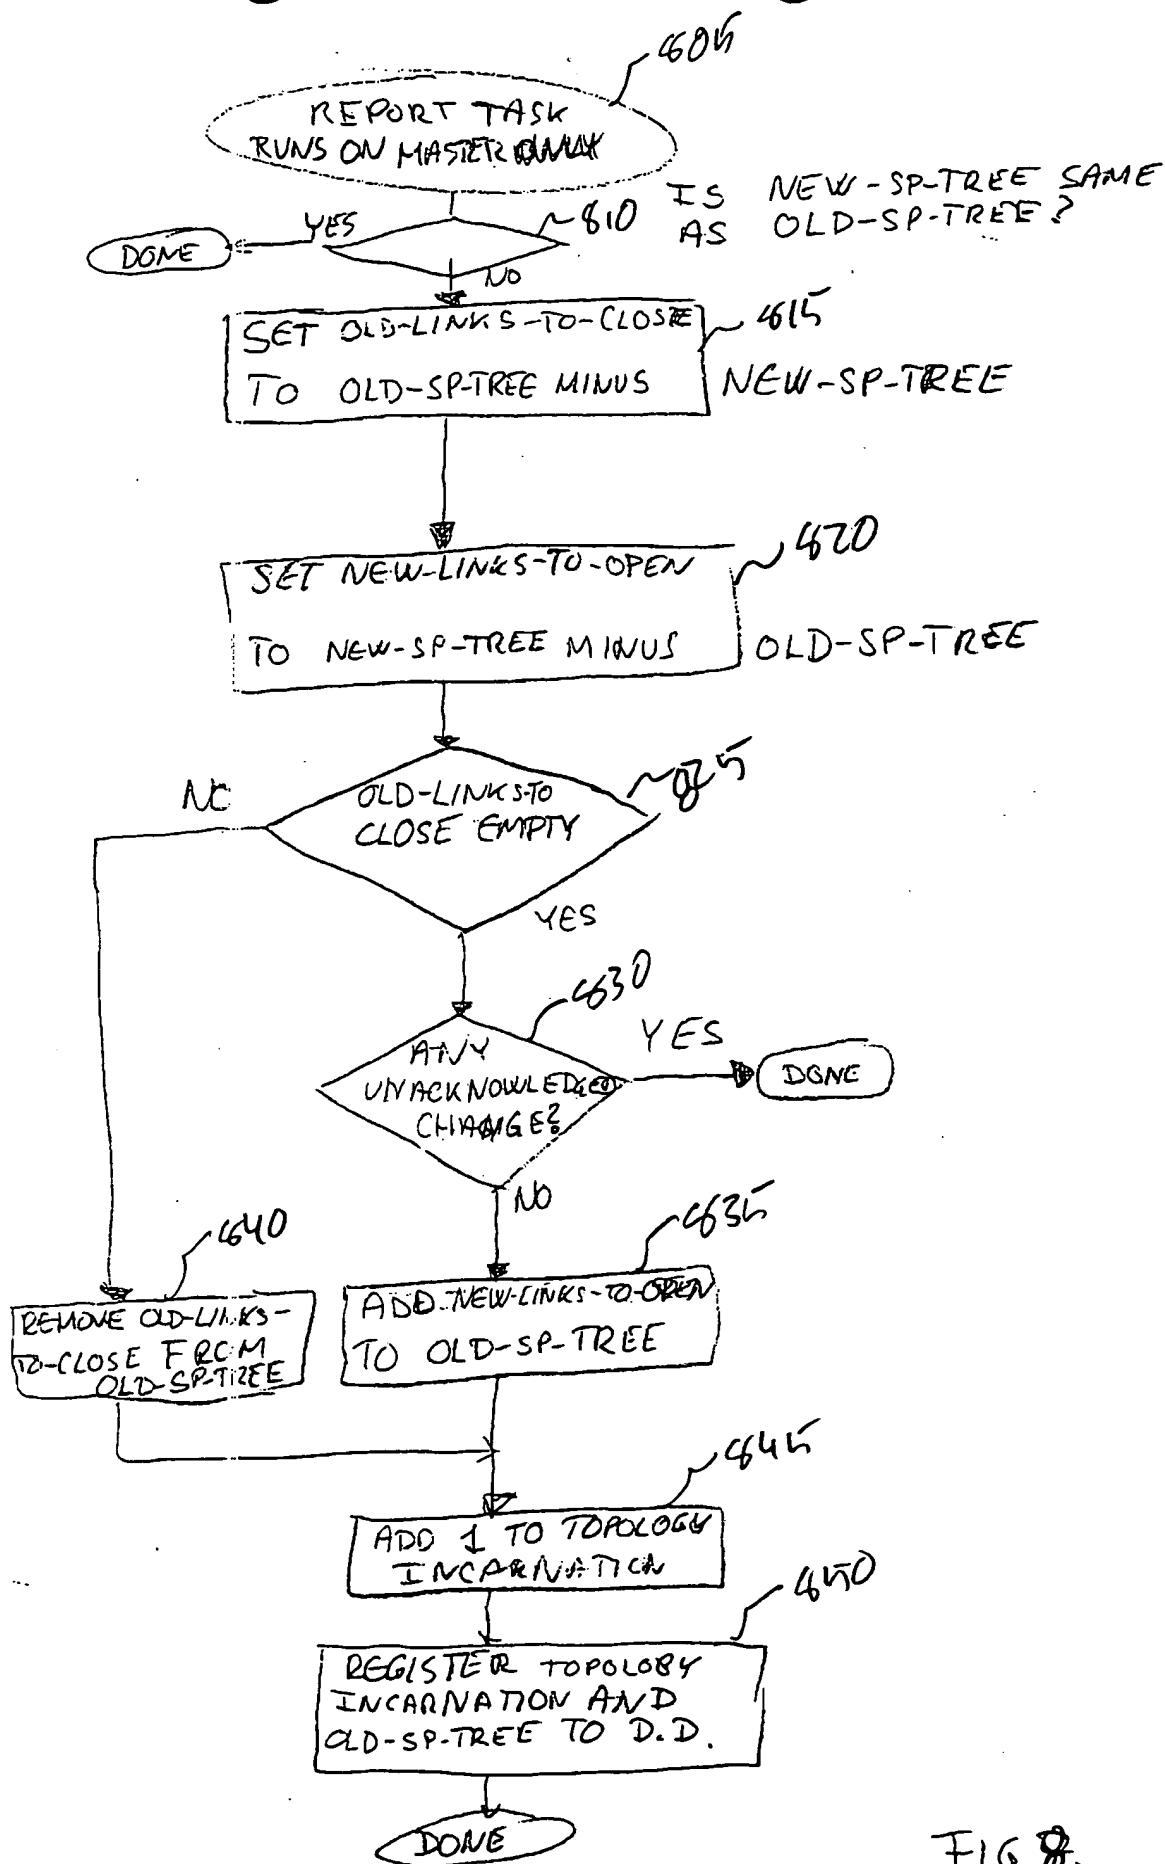 805
REPORT TASK
RUNS ON MASTER ONLY
IS NEW-SP-TREE SAME
AS OLD-SP-TREE?
810
YES
DONE
NO
SET OLD-LINKS-TO-CLOSE
TO OLD-SP-TREE MINUS NEW-SP-TREE
815
820
SET NEW-LINKS-TO-OPEN
TO NEW-SP-TREE MINUS OLD-SP-TREE
825
NO
OLD-LINKS-TO
CLOSE EMPTY
YES
830
ANY
UNACKNOWLEDGED
CHANGE?
YES
DONE
NO
835
840
ADD NEW-LINKS-TO-OPEN
TO OLD-SP-TREE
REMOVE OLD-LINKS-
TO-CLOSE FROM
OLD-SP-TREE
845
ADD 1 TO TOPOLOGY
INCARNATION
850
REGISTER TOPOLOGY
INCARNATION AND
OLD-SP-TREE TO D.D.
DONE
FIG 8.